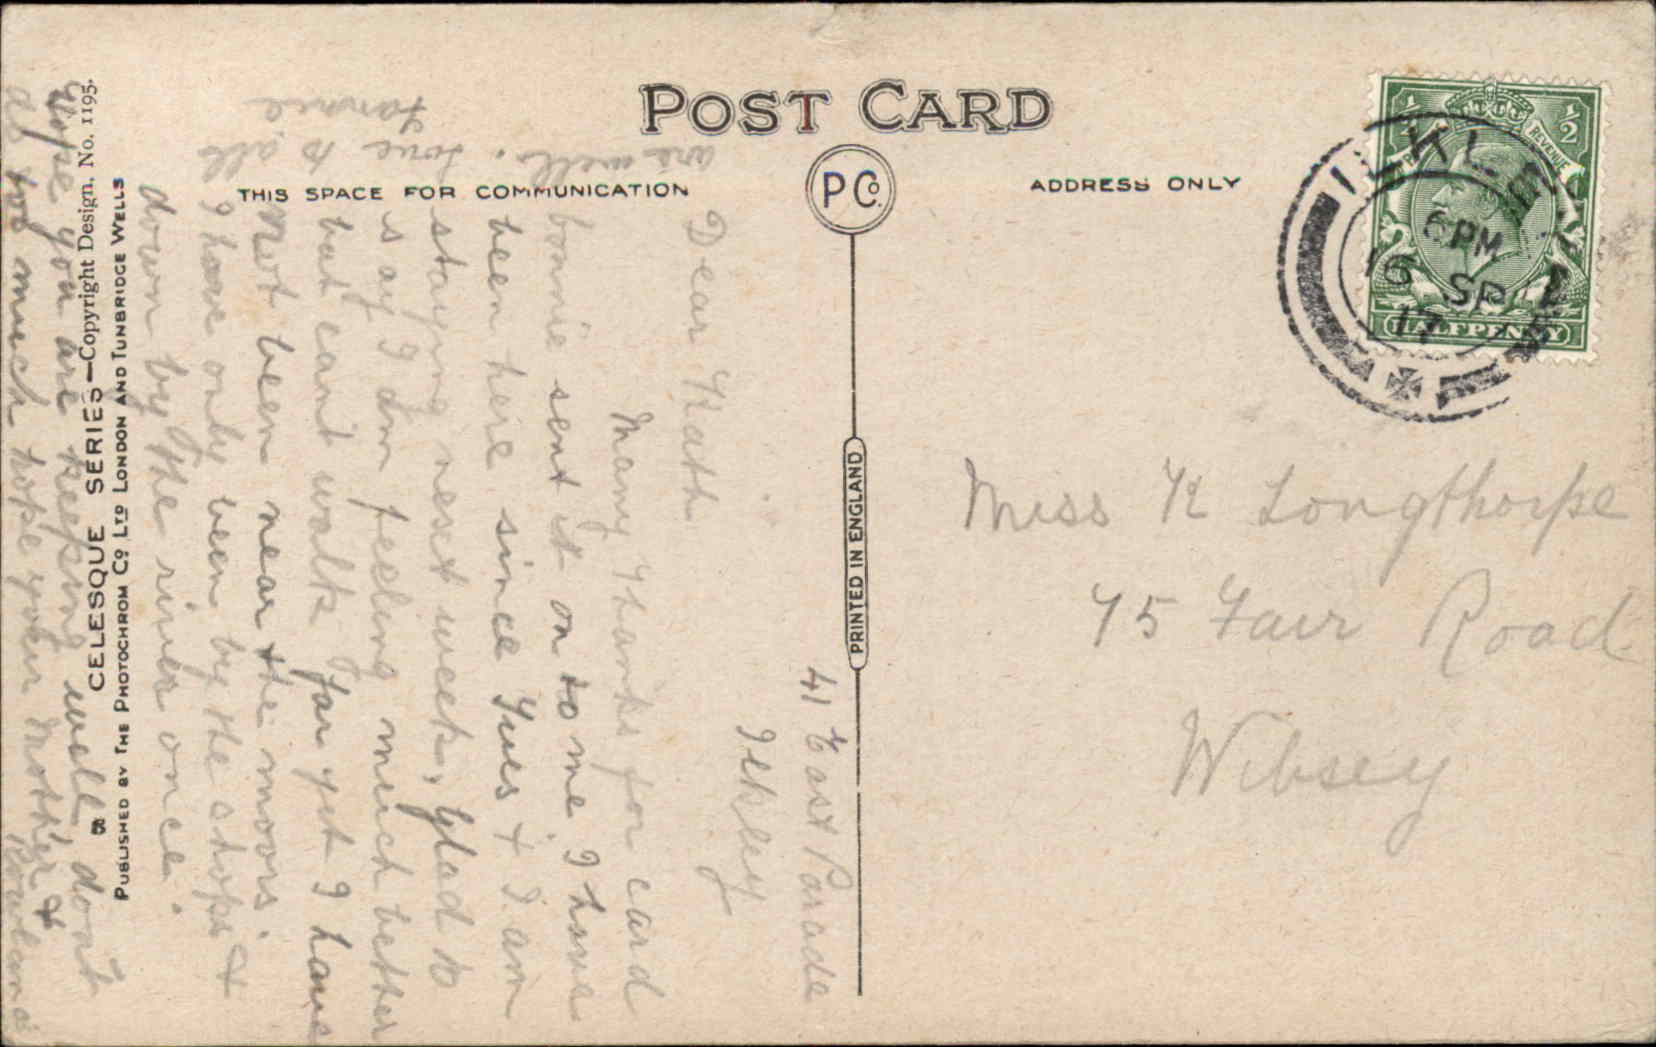 POST CARD
THIS SPACE FOR COMMUNICATION
ADDRESS ONLY
P Co.
PRINTED IN ENGLAND
CELESQUE SERIES—Copyright Design. No. 1195.
PUBLISHED BY THE PHOTOCHROM CO LTD LONDON AND TUNBRIDGE WELLS
ILKLEY
6 PM
16 SP
17
REVENUE
½
½
HALFPENNY
Miss K Longthorpe
75 Fair Road
Wibsey
41 East Parade
Ilkley
Dear Kath
Many thanks for card
bonnie sent it on to me I have
been here since Tues & I am
staying nesct week, Glad to
say I am feeling much better
but can't walk far yet I have
Not been near the moors
I have only been by the shops &
down by the river once.
Hope you are keeping well, dont
do too much hope your Mother &
are well.
love to all